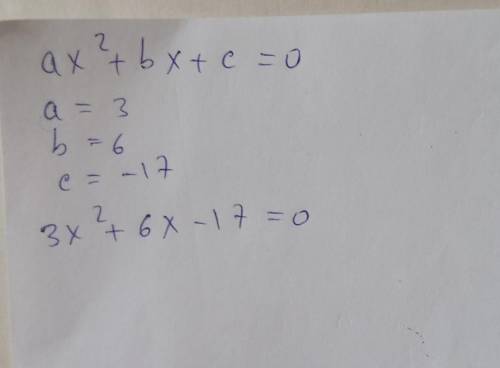 ax²+bx+c=0
a = 3
b = 6
c = -17
3x²+6x-17=0